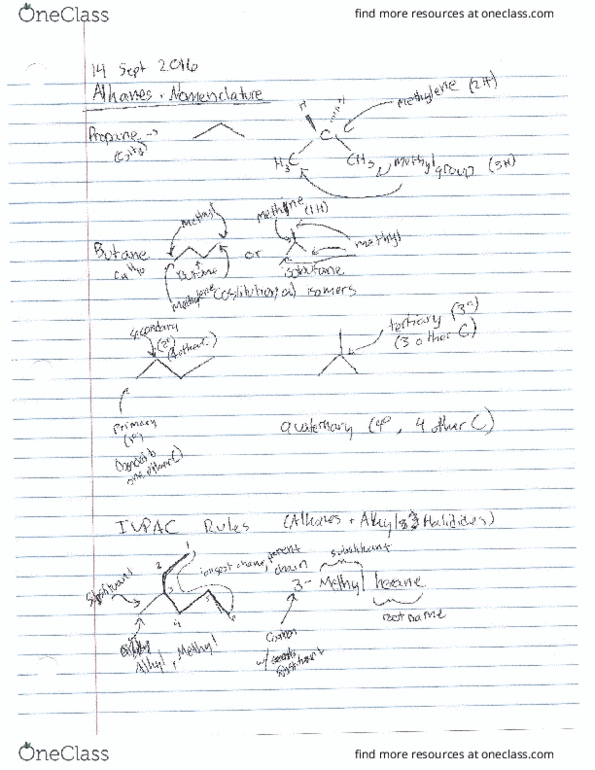 OneClass
find more resources at oneclass.com
14 Sept 2016
Alkanes + Nomenclature
Propane →
(C3H8)
H
H
C
H3C
CH3
methylene (2H)
methyl group (3H)
Butane
C4H10
methyl
Butane
Methylene
or
methine
(1H)
methyl
isobutane
isomers
secondary
(2°)
tertiary (3°)
(3 other C)
primary
(1°)
quaternary (4°, 4 other C)
IUPAC Rules (Alkanes + Alkyl Halides)
1
2
3
4
5
6
longest chane, parent
chain
substituent
3- Methyl hexane
root name
Alkyl, Methyl
Carbon
w/
OneClass
find more resources at oneclass.com